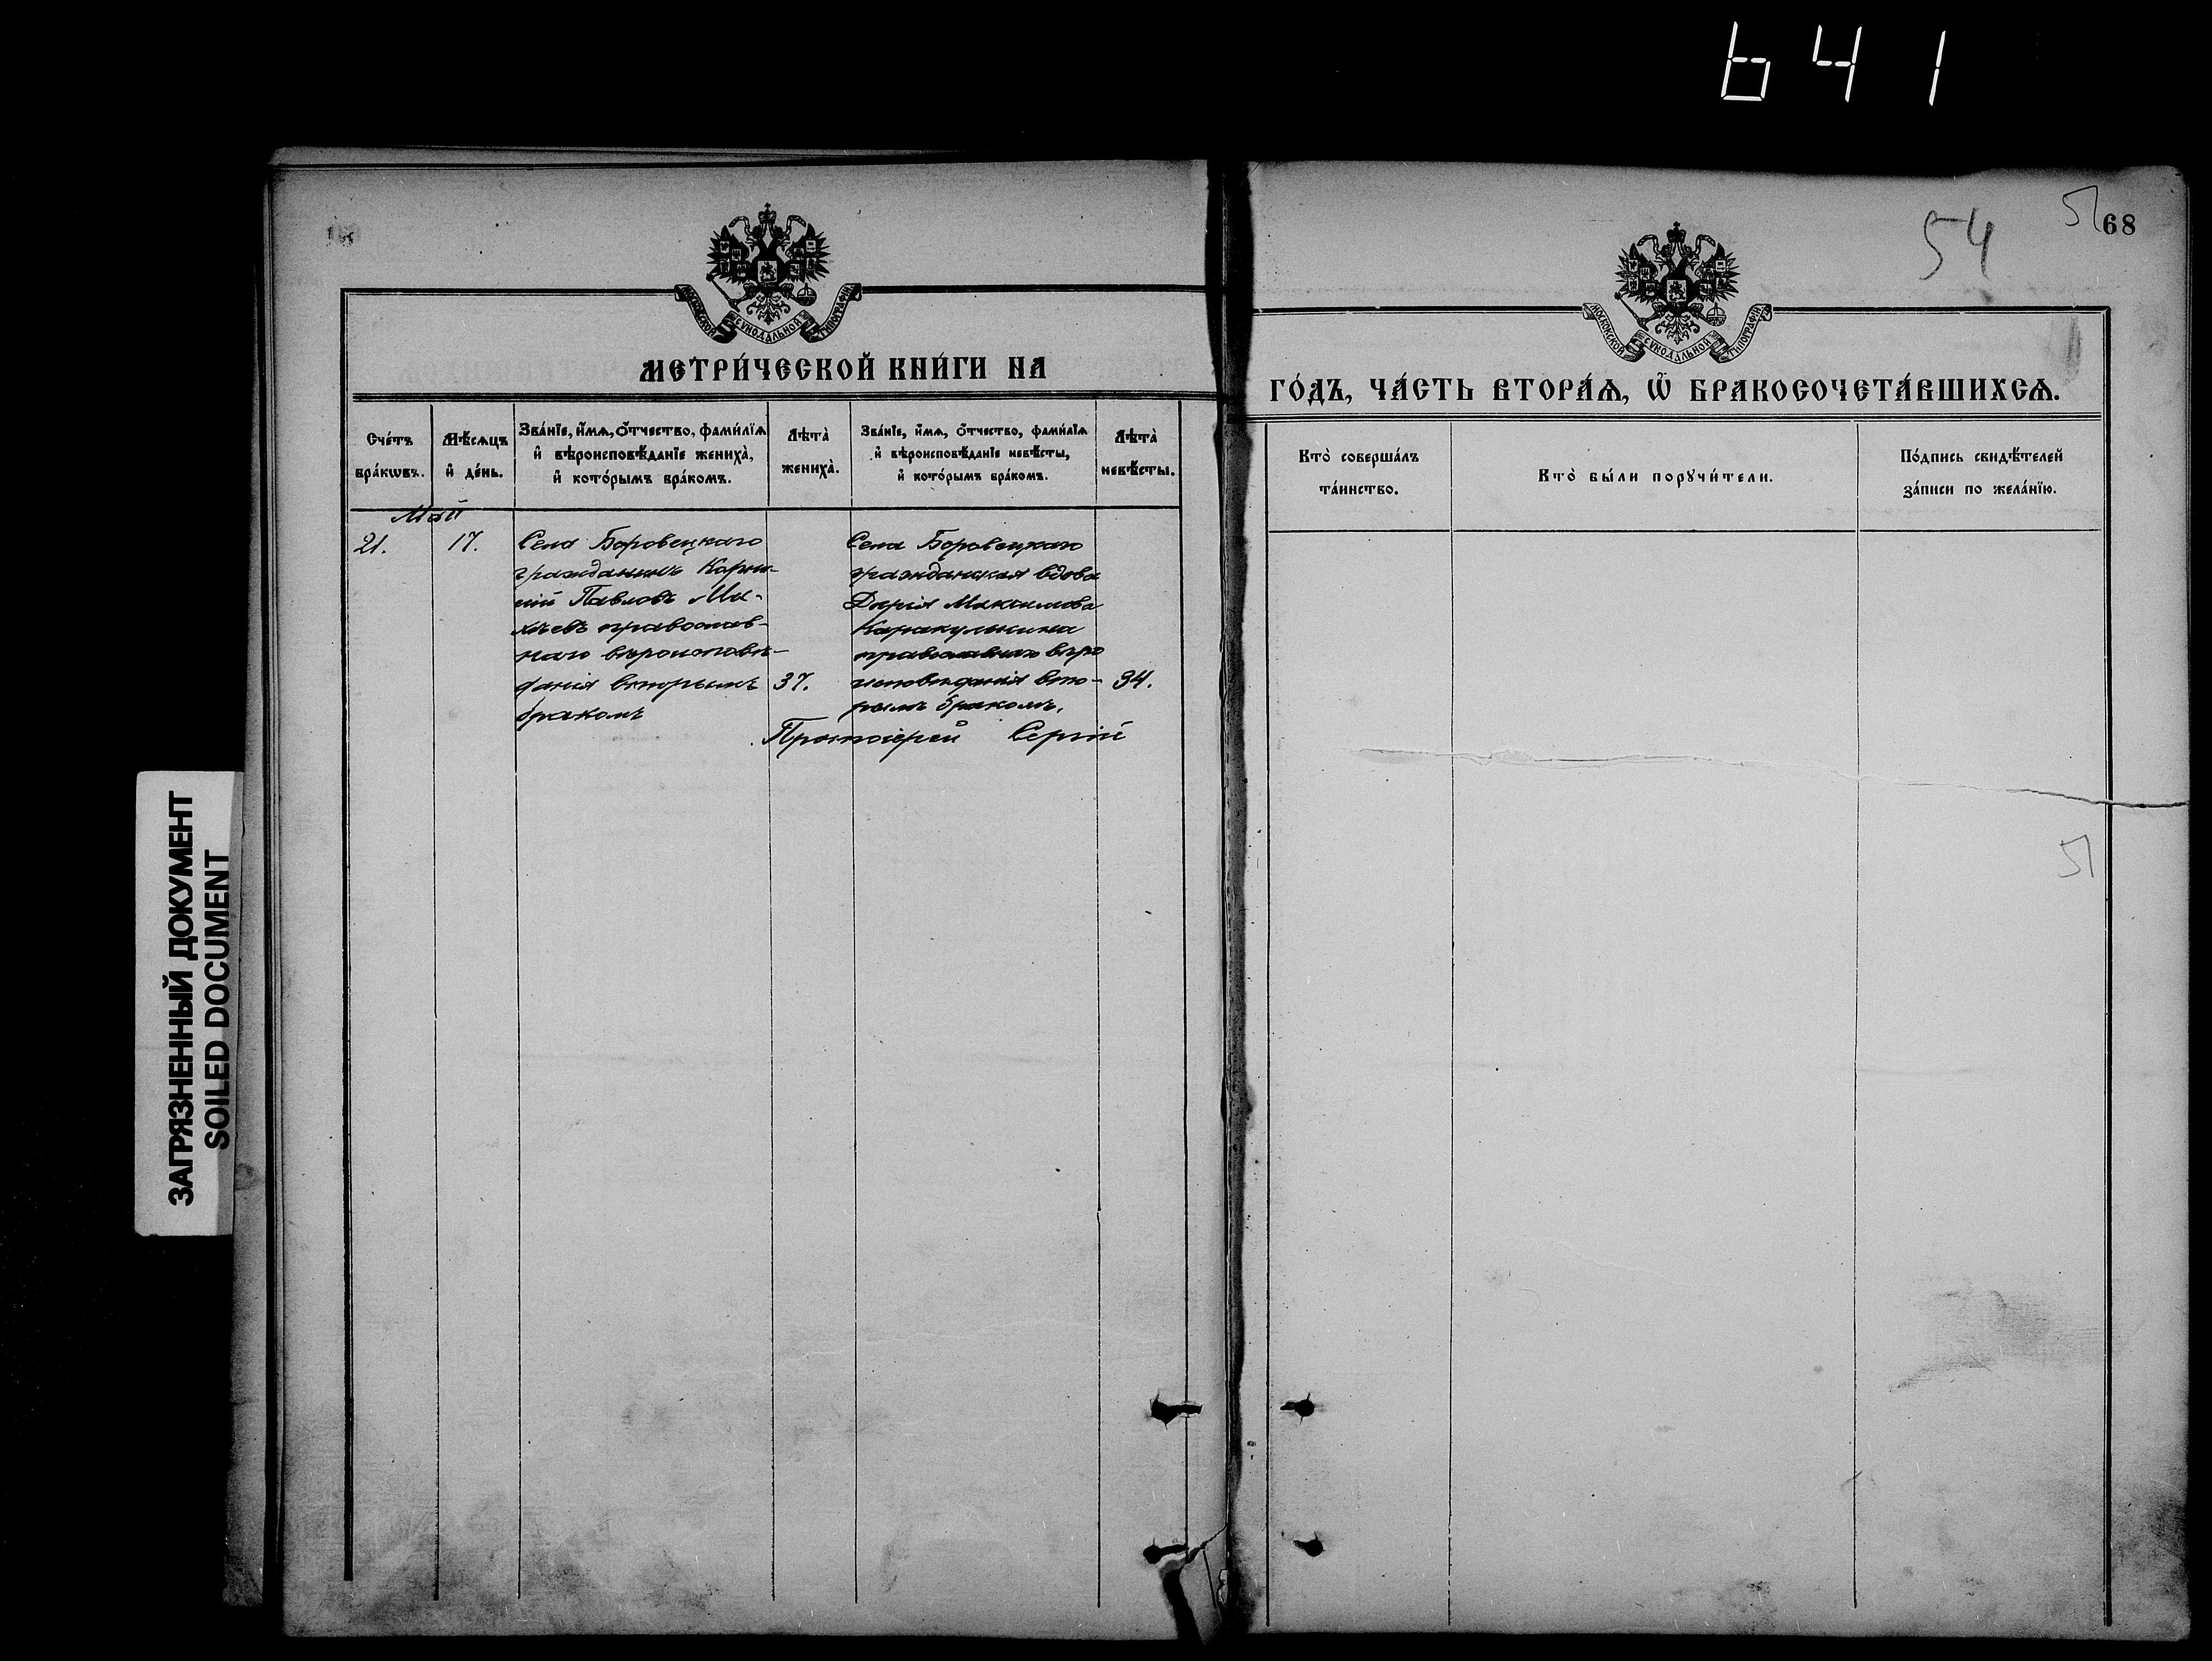 641
54
51
68
МОСКОВСКОЙ СѴНОДАЛЬНОЙ ТИПОГРАФІИ
МОСКОВСКОЙ СѴНОДАЛЬНОЙ ТИПОГРАФІИ
МЕТРИ́ЧЕСКОЙ КНИ́ГИ НА
ГО́ДЪ, ЧА́СТЬ ВТОРА́Ѧ, Ѽ БРАКОСОЧЕТА́ВШИХСѦ.
Сче́тъ
бра́кѡвъ.
Мѣ́сѧцъ
и҆ де́нь.
Зва́нїе, и҆́мѧ, ѻ҆́тчество, фами́лїѧ
и҆ вѣроисповѣ́данїе жениха̀,
и҆ кото́рымъ бра́комъ.
Лѣта̀
жениха̀.
Зва́нїе, и҆́мѧ, ѻ҆́тчество, фами́лїѧ
и҆ вѣроисповѣ́данїе невѣ́сты,
и҆ кото́рымъ бра́комъ.
Лѣта̀
невѣ́сты.
Кто̀ соверша́лъ
та́инство.
Кто̀ бы́ли порꙋчи́тели.
По́дпись свидѣ́телей
за́писи по жела́нїю.
Май
21.
17.
Села Боровецкаго
гражданинъ Корни-
лій Павловъ
православ-
наго вѣроисповѣ-
данія вторымъ
бракомъ
37.
Села Боровецкаго
гражданская вдова
Дарія Максимова
православнаго вѣро
исповѣданія вто-
рымъ бракомъ.
34.
Протоіерей Сергій
51
ЗАГРЯЗНЕННЫЙ ДОКУМЕНТ
SOILED DOCUMENT